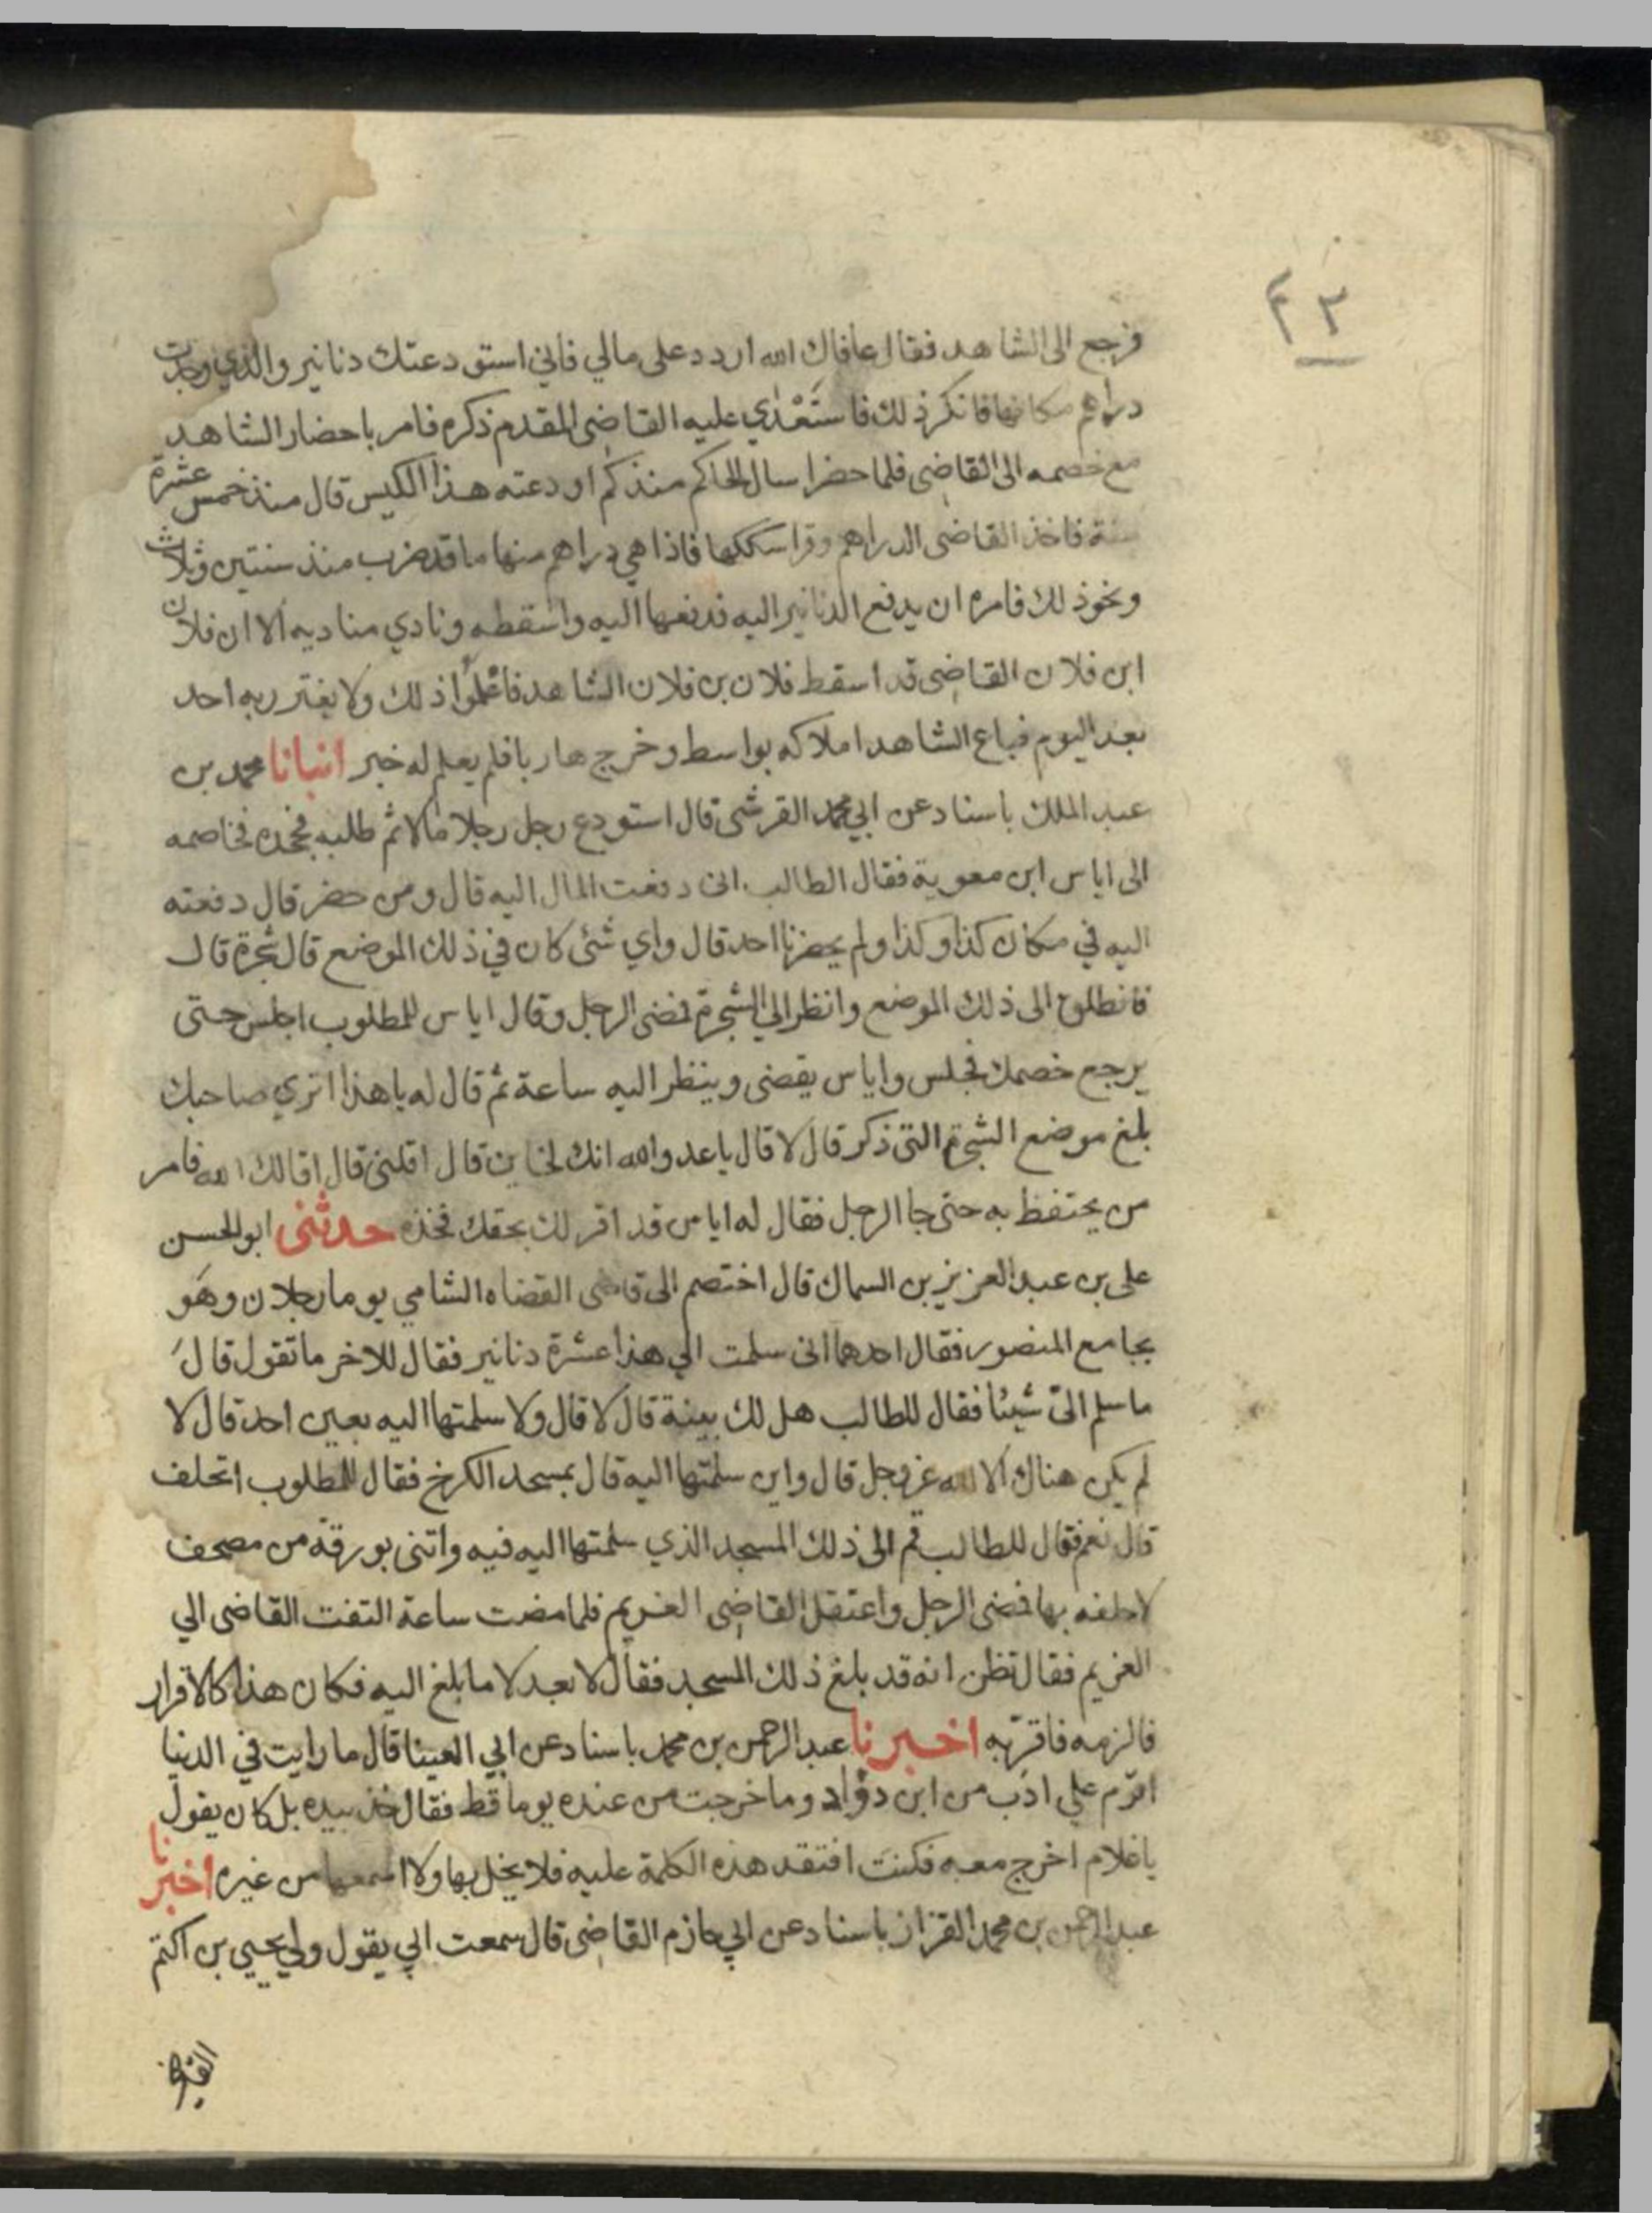 ٢٣
فرجع الى الشاهد فقال عافاك الله اردد على مالي فاني استودعتك دنانير والذي وجدت
دراهم مكانها فانكر ذلك فاستَعْدَي عليه القاضى المقدم ذكره فامر باحضار الشاهد
مع خصمه الى القاضى فلما حضرا سال الحاكم منذ كم اودعته هذا الكيس قال منذ خمس عشرة
سنة فاخذ القاضى الدراهم وقرا سككها فاذا هي دراهم منها ما قد ضرب منذ سنتين وثلاث
ونحو ذلك فامره ان يدفع الدنانير اليه فدفعها اليه واسقطه ونادي مناديه الا ان فلان
ابن فلان القاضى قد اسقط فلان بن فلان الشاهد فاعلموا ذلك ولا يغتر ربه احد
بعد اليوم فباع الشاهد املاكه بواسط وخرج هاربا فلم يعلم له خبر انبانا محمد بن
عبد الملك باسناد عن ابي محمد القرشى قال استودع رجل رجلا مالا ثم طلبه فجحده فخاصمه
الى اياس ابن معوية فقال الطالب انى دفعت المال اليه قال ومن حضر قال دفعته
اليه في مكان كذا وكذا ولم يحضرنا احد قال واي شئى كان في ذلك الموضع قال شجرة قال
فانطلق الى ذلك الموضع وانظر الي الشجرة فمضى الرجل وقال اياس للمطلوب اجلس حتى
يرجع خصمك فجلس واياس يقضى وينظر اليه ساعة ثم قال له يا هذا اتري صاحبك
بلغ موضع الشجرة التى ذكر قال لا قال يا عدو الله انك لخاين قال اقلنى قال اقالك الله فامر
من يحتفظ به حتى جا الرجل فقال له اياس قد اقر لك بحقك فخذه حدثنى ابو الحسن
على بن عبد العزيز بن السماك قال اختصم الى قاضى القضاه الشامي يوما رجلان وهو
بجامع المنصور فقال احدهما انى سلمت الي هذا عشرة دنانير فقال للاخر ما تقول قال
ما سلم الىّ شيئا فقال للطالب هل لك بينة قال لا قال ولا سلمتها اليه بعين احد قال لا
لم يكن هناك الا الله عز وجل قال واين سلمتها اليه قال بمسجد الكرخ فقال للمطلوب اتحلف
قال نعم فقال للطالب قم الى ذلك المسجد الذي سلمتها اليه فيه واتنى بورقة من مصحف
لاحلفه بها فمضى الرجل واعتقل القاضى الغريم فلما مضت ساعة التفت القاضى الي
الغريم فقال تظن انه قد بلغ ذلك المسجد فقال لا بعد لا ما بلغ اليه فكان هذا كالاقرار
فالزمه فاقرّ به اخبرنا عبد الرحمن بن محمد باسناد عن ابي العينا قال ما رايت في الدنيا
اقوم علي ادب من ابن دؤاد وما خرجت من عنده يوما قط فقال خذ بيده بل كان يقول
يا غلام اخرج معه فكنت افتقد هذه الكلمة عليه فلا يخل بها ولا اسمعها من غيره اخبرنا
عبد الرحمن بن محمد القزاز باسناد عن ابي حازم القاضى قال سمعت ابي يقول ولي يحيي بن اكثم